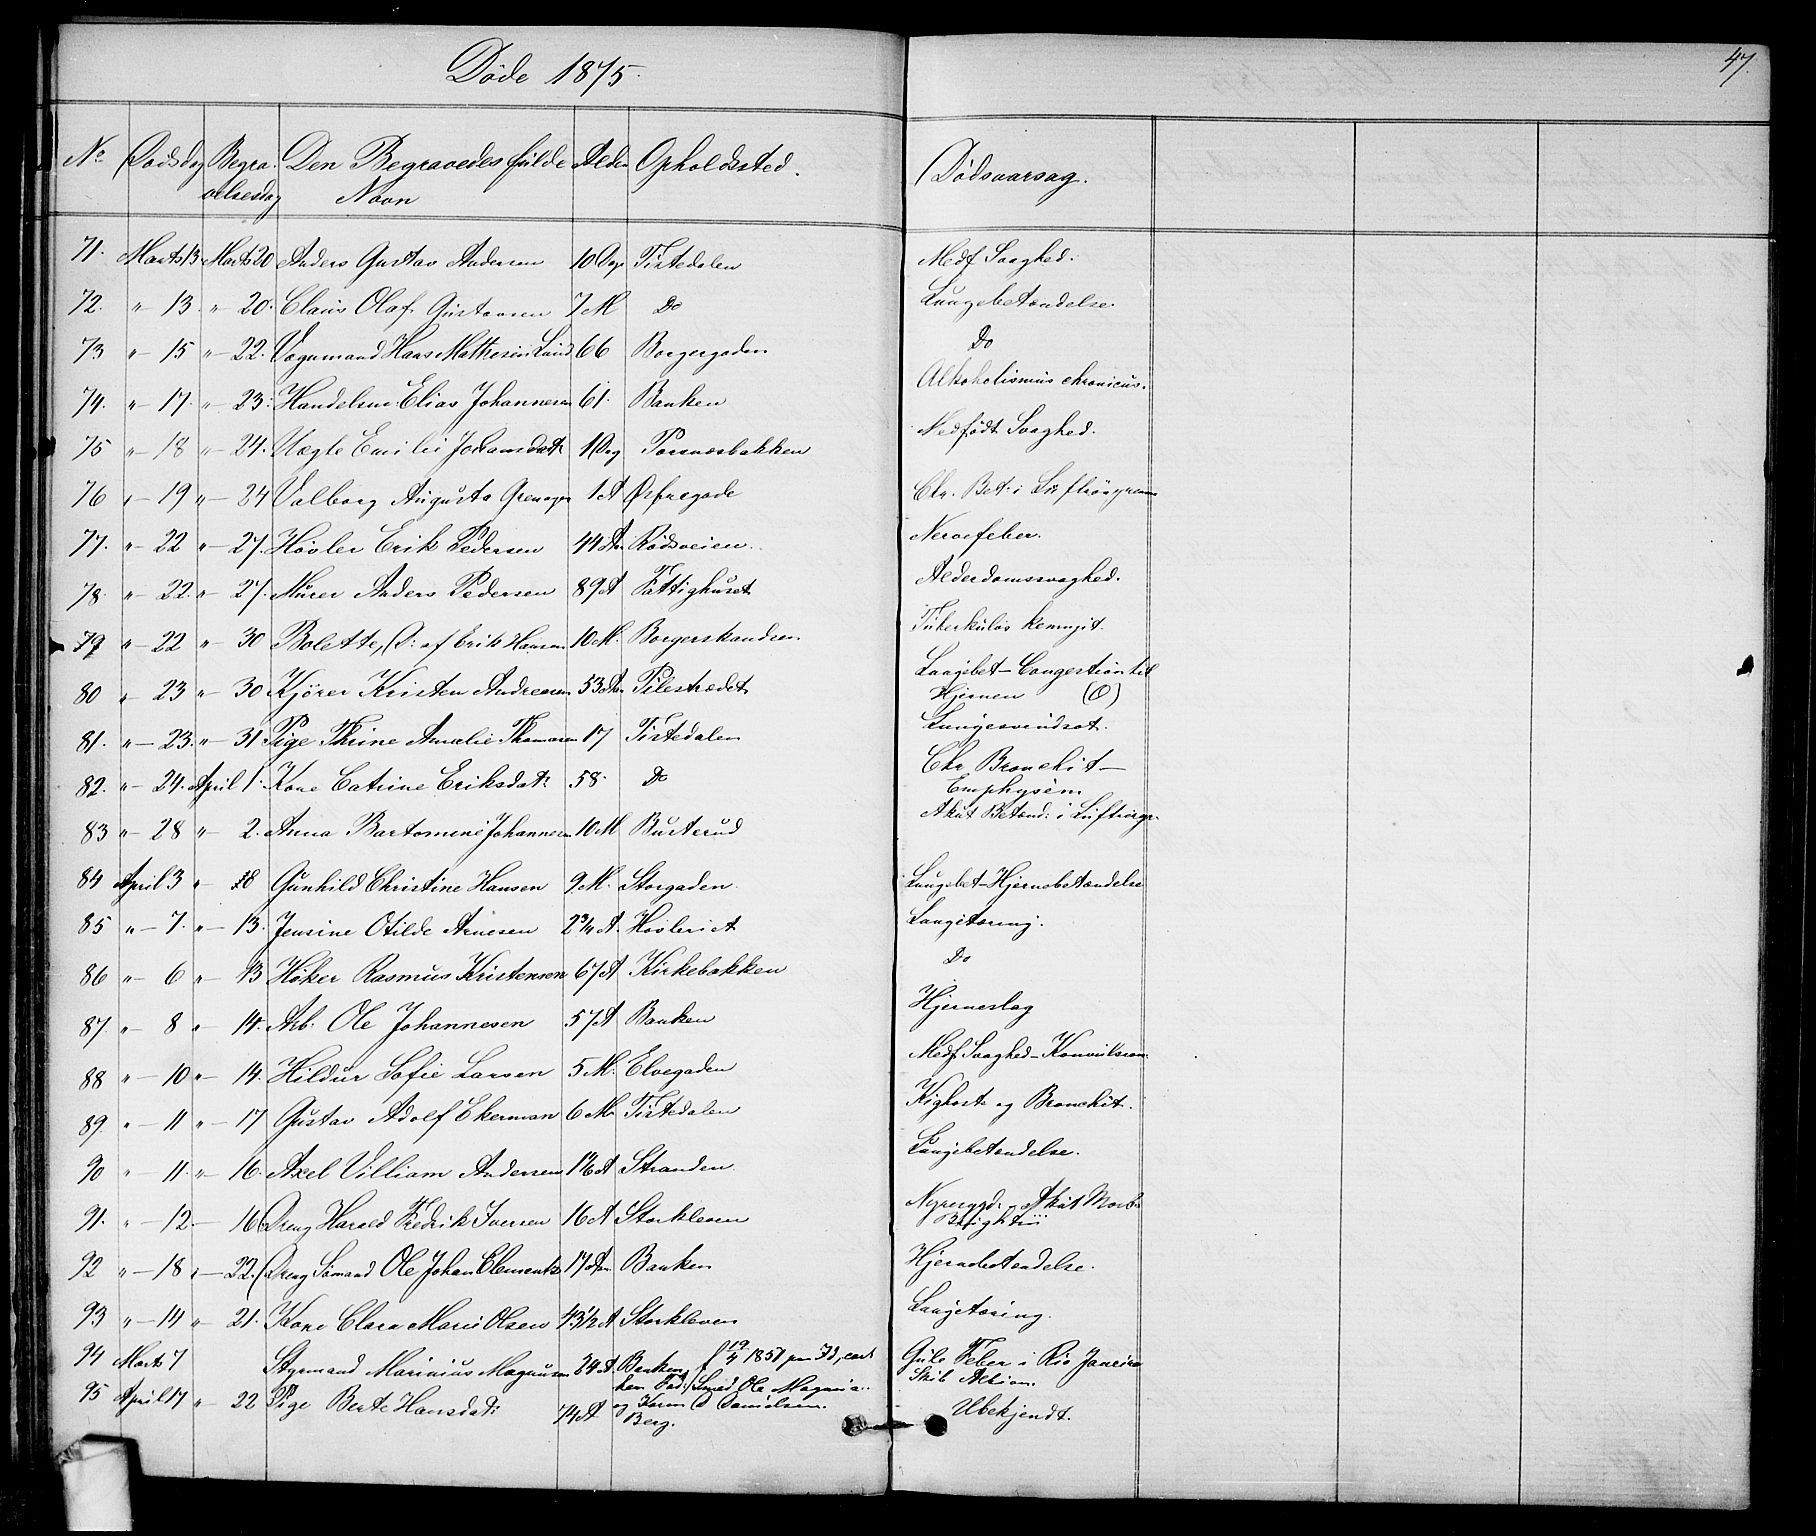 Døde 1875.
47.
No Dødsdag Begra- Den Begravedes fulde Alder Opholdssted. Dødsaarsag.
velsesdag Navn
71. Marts 13 Marts 20 Anders Gustav Andersen 10 Dag Tistedalen Medf Svaghed.
72. " - 13. " - 20. Claus Olaf Gustavsen 7 M Do Lungebetændelse.
73 " - 15 " - 22. Vognmand Hans Mathesin Lund 66 Borgergaden Do
74. " - 17. " - 23. Handelsm. Elias Johannesen 61. Banken Alkoholismus chronicus.
75 " - 18 " - 24. Uægte Emilie Johansdatr 1 Dag Torsnæsbakken Medfødt Svaghed.
76 " - 19 " - 24 Valborg Augusta 1 A Østregade Chr. Bet. i Luftrørgrenene
77. " - 22 " - 27. Høvler Erik Pedersen 44 Aar Rødsveien. Nervefeber.
78. " - 22. " - 27. Murer Anders Pedersen 89 A Fattighuset Alderdomssvaghed.
79 " - 22 " - 30 Bolette, D: af Erik Hansen 10 M. Borgerskandsen Tuberkuløs
80 " - 23 " - 30 Kjører Kristen Andreasen 53 Aar Pilestrædet Lungebet - Congestion til
Hjernen (O)
81. " - 23. " - 31 Pige Thrine Amalie Thomasen 17 Tistedalen Lungesvindsot.
82. " - 24. April 1. Kone Catrine Eriksdatr 58. Do Chr Bronchit -
Emphysem
83 " - 28 " - 2. Anna Bartomine Johannesen 10 M Busterud Akut Betænd: i Luftrørgr.
84 April 3 " - 8 Gunhild Christine Hansen 9 M. Storgaden. Lungebet - Hjernebetændelse
85 " - 7. " - 13. Jensine Otilde Arnesen 2 3/4 A. Høvleriet Lungetæring.
86 " - 6 " - 13 Høker Rasmus Kristensen 67 A Kirkebakken Do
87. " - 8 " - 14. Arb. Ole Johannesen 57 A Banken Hjerneslag
88 " - 10 " - 14. Hildur Sofie Larsen 5 M. Elvegaden Medf Svaghed - Konvulsion.
89. " - 11 " - 17 Gustav Adolf Ekerman 6 M. Tistedalen Kighoste og Bronchit.
90 " - 11. " - 16. Axel Villiam Andersen A Stranden Lungebetændelse.
91. " - 12 - 16 Dreng Harald Fredrik Iversen 16 A Storkleven Nyresygd. Akut Morb.
Brightii
92 " - 18 " - 22. Dreng Sømand Ole Johan Clements 17 Aar. Banken Hjernebetændelse.
93 " - 14 " - 21. Kone Clara Marie Olsen 43 1/2 A Storkleven Lungetæring.
94 Marts 7 Styrmand Marinius Magnusen 24 A Banken, f 19/4 1851 Gule Feber i Rio Janeiro
Fad: Smed Ole Magnus.. Skib
95 April 17 " 22 Pige Berte Hansdat: 74 A Berg. og Karen Danielsen. Ubekjendt.